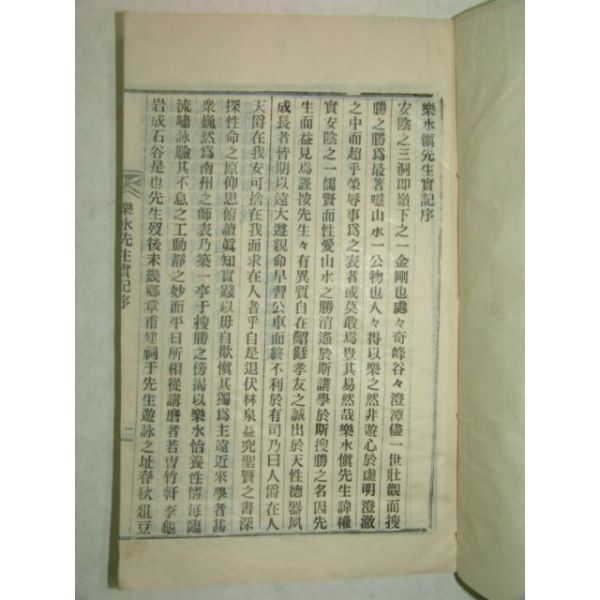 樂水愼先生實記序
安陰之三洞即嶺下之一金剛也處々奇峰谷々澄潭儘一世壯觀而搜
勝之勝爲最著噫山水一公物也人々得以樂之然非遊心於虛明澄澈
之中而超乎榮辱事爲之表者或莫敢焉豈其易然哉樂水愼先生諱權
實安陰之一儒賢而性愛山水之勝消遙於斯講學於斯搜勝之名因先
生而益見焉謹按先生々有異質自在髫齡孝友之誠出於天性德器夙
成長者皆期以遠大遵親命早習公車而終不利於有司乃曰人爵在人
天爵在我安可捨在我而求在人者乎自是退伏林泉益究聖賢之書深
探性命之原仰思俯讀眞知實踐以毋自欺愼其獨爲主遠近來學者甚
衆巍然爲南州之師表乃築一亭于搜勝之傍揭以樂水怡養性情每臨
流嘯詠驗其不息之工動靜之妙而平日所相從講磨者若曺竹軒李龜
岩成石谷是也先生歿後未幾鄕章甫建祠于先生遊詠之址春秋俎豆
樂水先生實記序
二